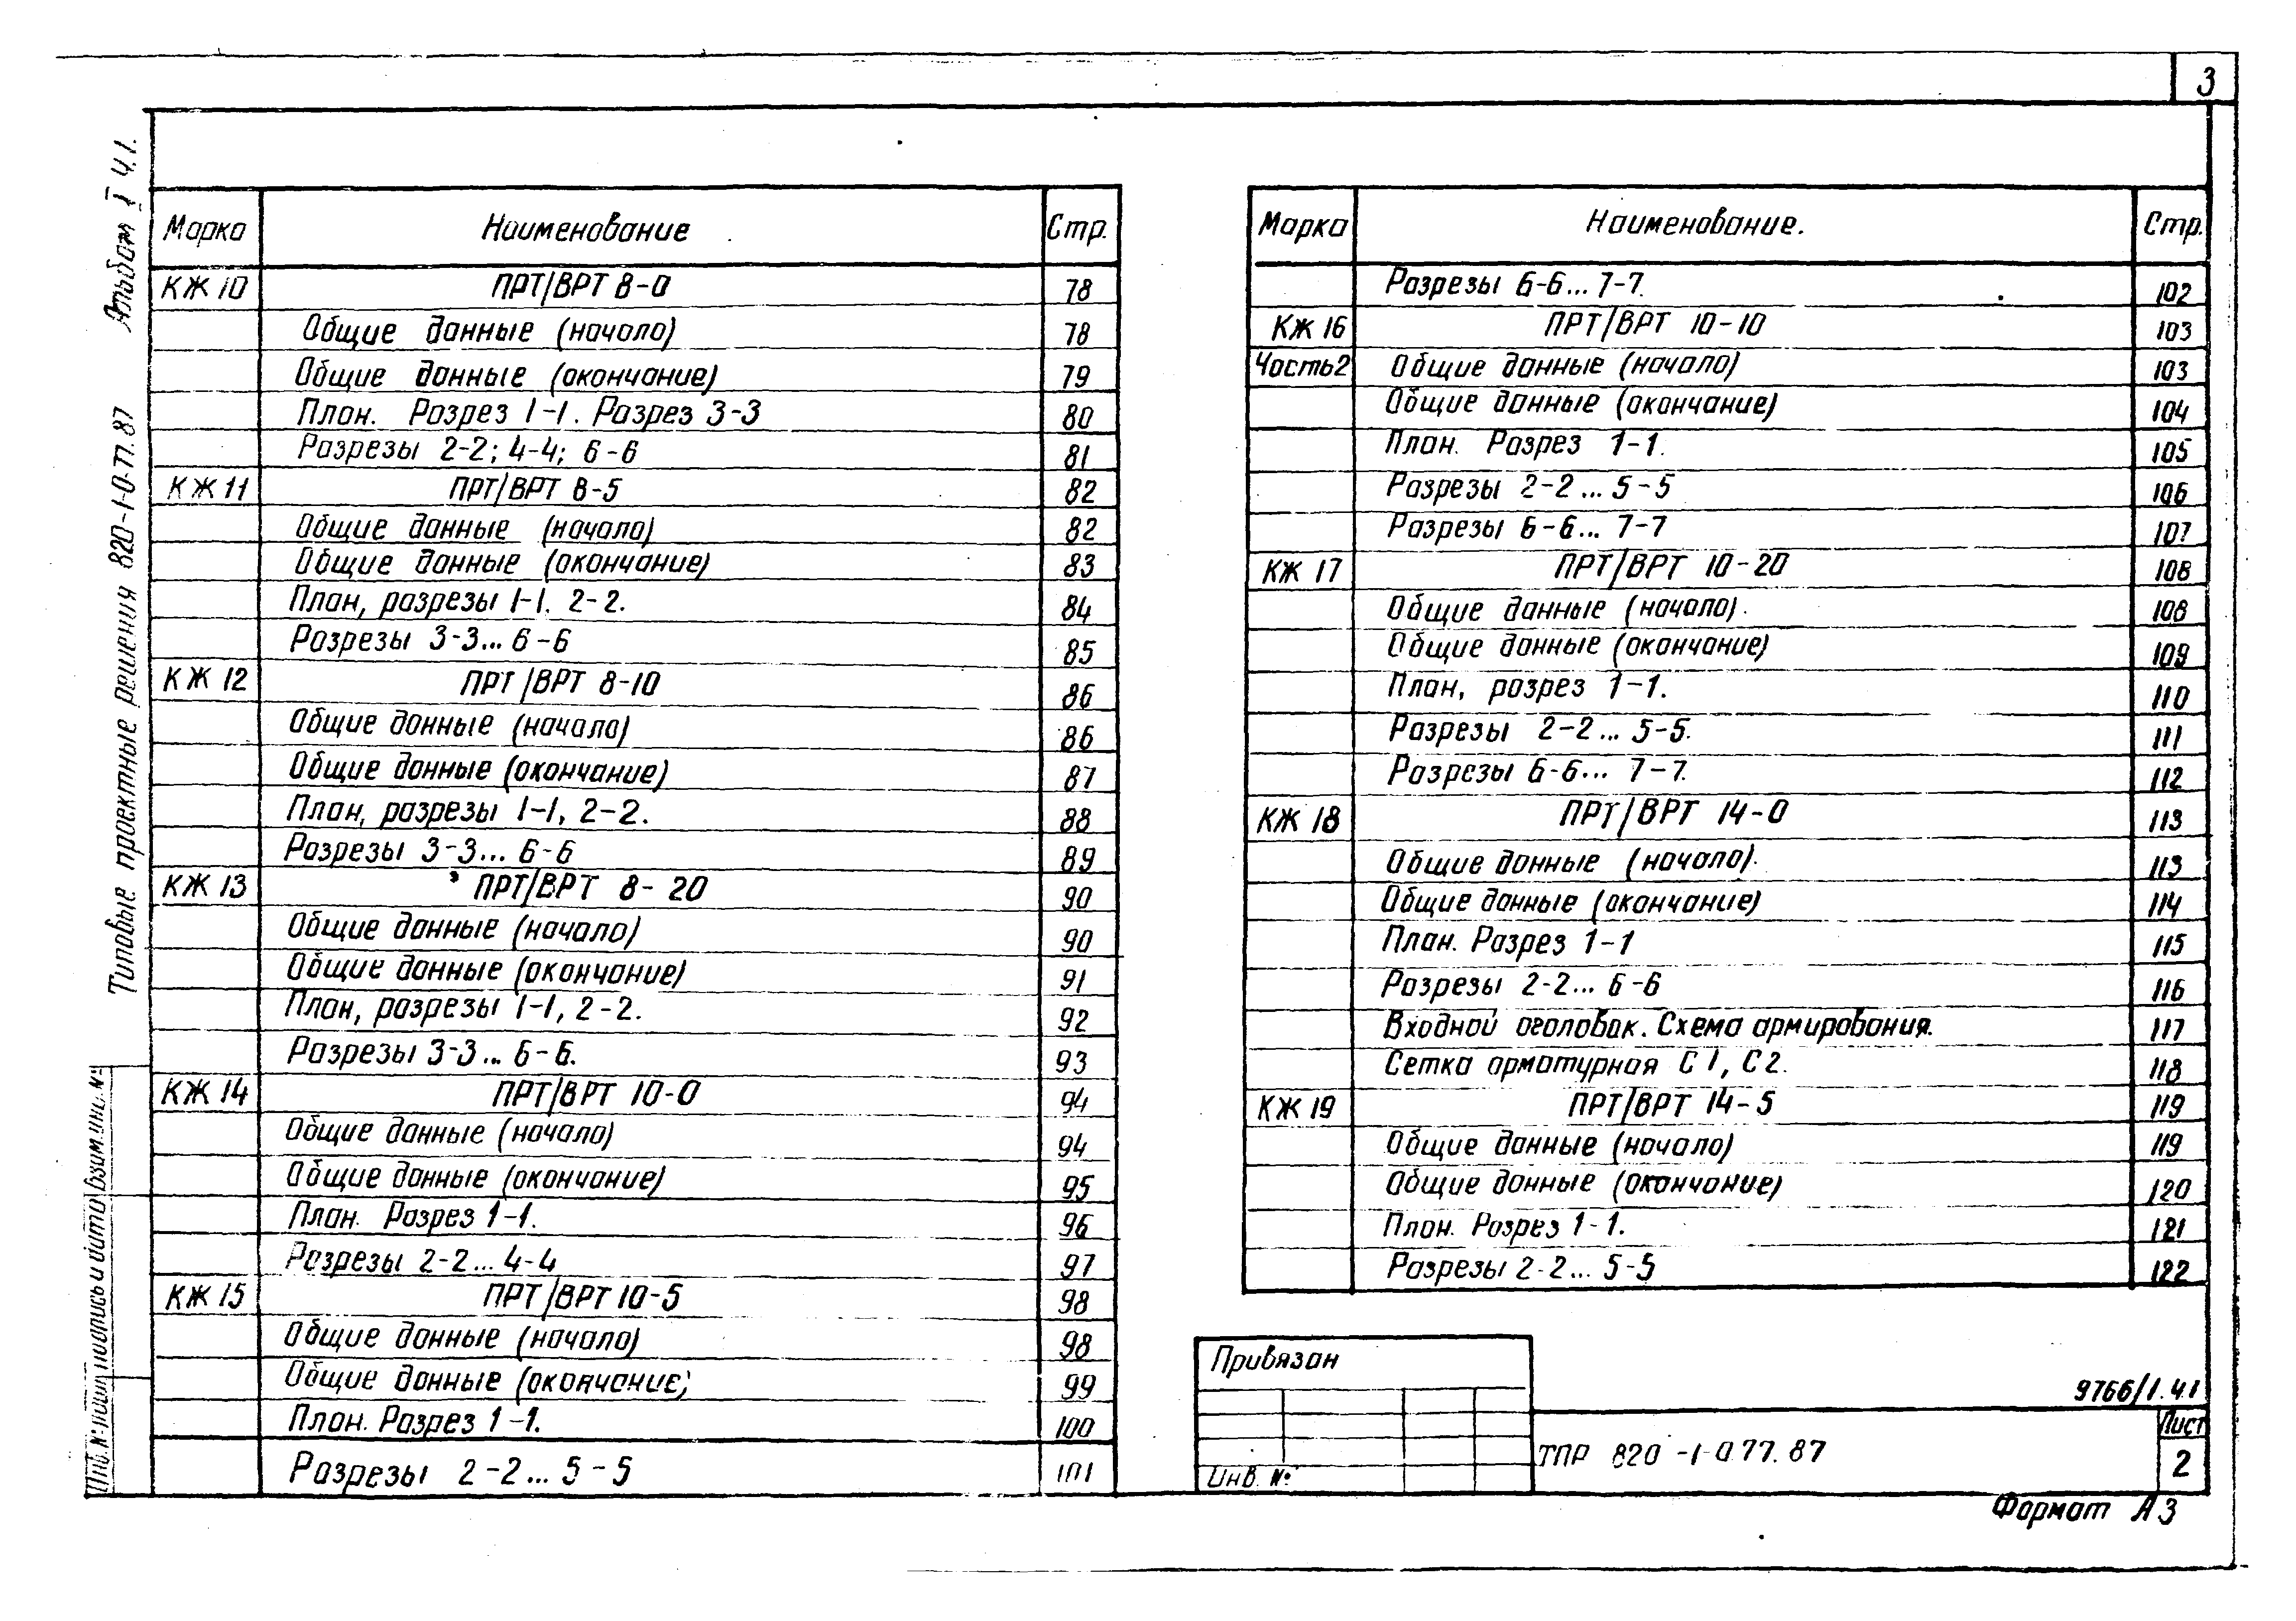 3
Альбом I ч.1.
Типовые проектные решения 820-1-0-77.87
Марка Наименование Стр.
КЖ 10 ПРТ/ВРТ 8-0 78
Общие данные (начало) 78
Общие данные (окончание) 79
План. Разрез 1-1. Разрез 3-3 80
Разрезы 2-2; 4-4; 6-6 81
КЖ 11 ПРТ/ВРТ 8-5 82
Общие данные (начало) 82
Общие данные (окончание) 83
План, разрезы 1-1. 2-2. 84
Разрезы 3-3... 6-6 85
КЖ 12 ПРТ/ВРТ 8-10 86
Общие данные (начало) 86
Общие данные (окончание) 87
План, разрезы 1-1, 2-2. 88
Разрезы 3-3... 6-6 89
КЖ 13 ПРТ/ВРТ 8-20 90
Общие данные (начало) 90
Общие данные (окончание) 91
План, разрезы 1-1, 2-2. 92
Разрезы 3-3... 6-6. 93
КЖ 14 ПРТ/ВРТ 10-0 94
Общие данные (начало) 94
Общие данные (окончание) 95
План. Разрез 1-1. 96
Разрезы 2-2... 4-4 97
КЖ 15 ПРТ/ВРТ 10-5 98
Общие данные (начало) 98
Общие данные (окончание) 99
План. Разрез 1-1. 100
Разрезы 2-2... 5-5 101
Марка Наименование. Стр.
Разрезы 6-6... 7-7. 102
КЖ 16 ПРТ/ВРТ 10-10 103
Часть2 Общие данные (начало) 103
Общие данные (окончание) 104
План. Разрез 1-1. 105
Разрезы 2-2... 5-5 106
Разрезы 6-6... 7-7 107
КЖ 17 ПРТ/ВРТ 10-20 108
Общие данные (начало). 108
Общие данные (окончание) 109
План, разрез 1-1. 110
Разрезы 2-2... 5-5. 111
Разрезы 6-6... 7-7. 112
КЖ 18 ПРТ/ВРТ 14-0 113
Общие данные (начало). 113
Общие данные (окончание) 114
План. Разрез 1-1 115
Разрезы 2-2... 6-6 116
Входной оголовок. Схема армирования. 117
Сетка арматурная С1, С2. 118
КЖ 19 ПРТ/ВРТ 14-5 119
Общие данные (начало) 119
Общие данные (окончание) 120
План. Разрез 1-1. 121
Разрезы 2-2... 5-5 122
Инв. № подл. Подпись и дата Взам. инв. №
Привязан
Инв. №
9766/1.ч.1
ТПР 820-1-0 77. 87
Лист
2
Формат А3